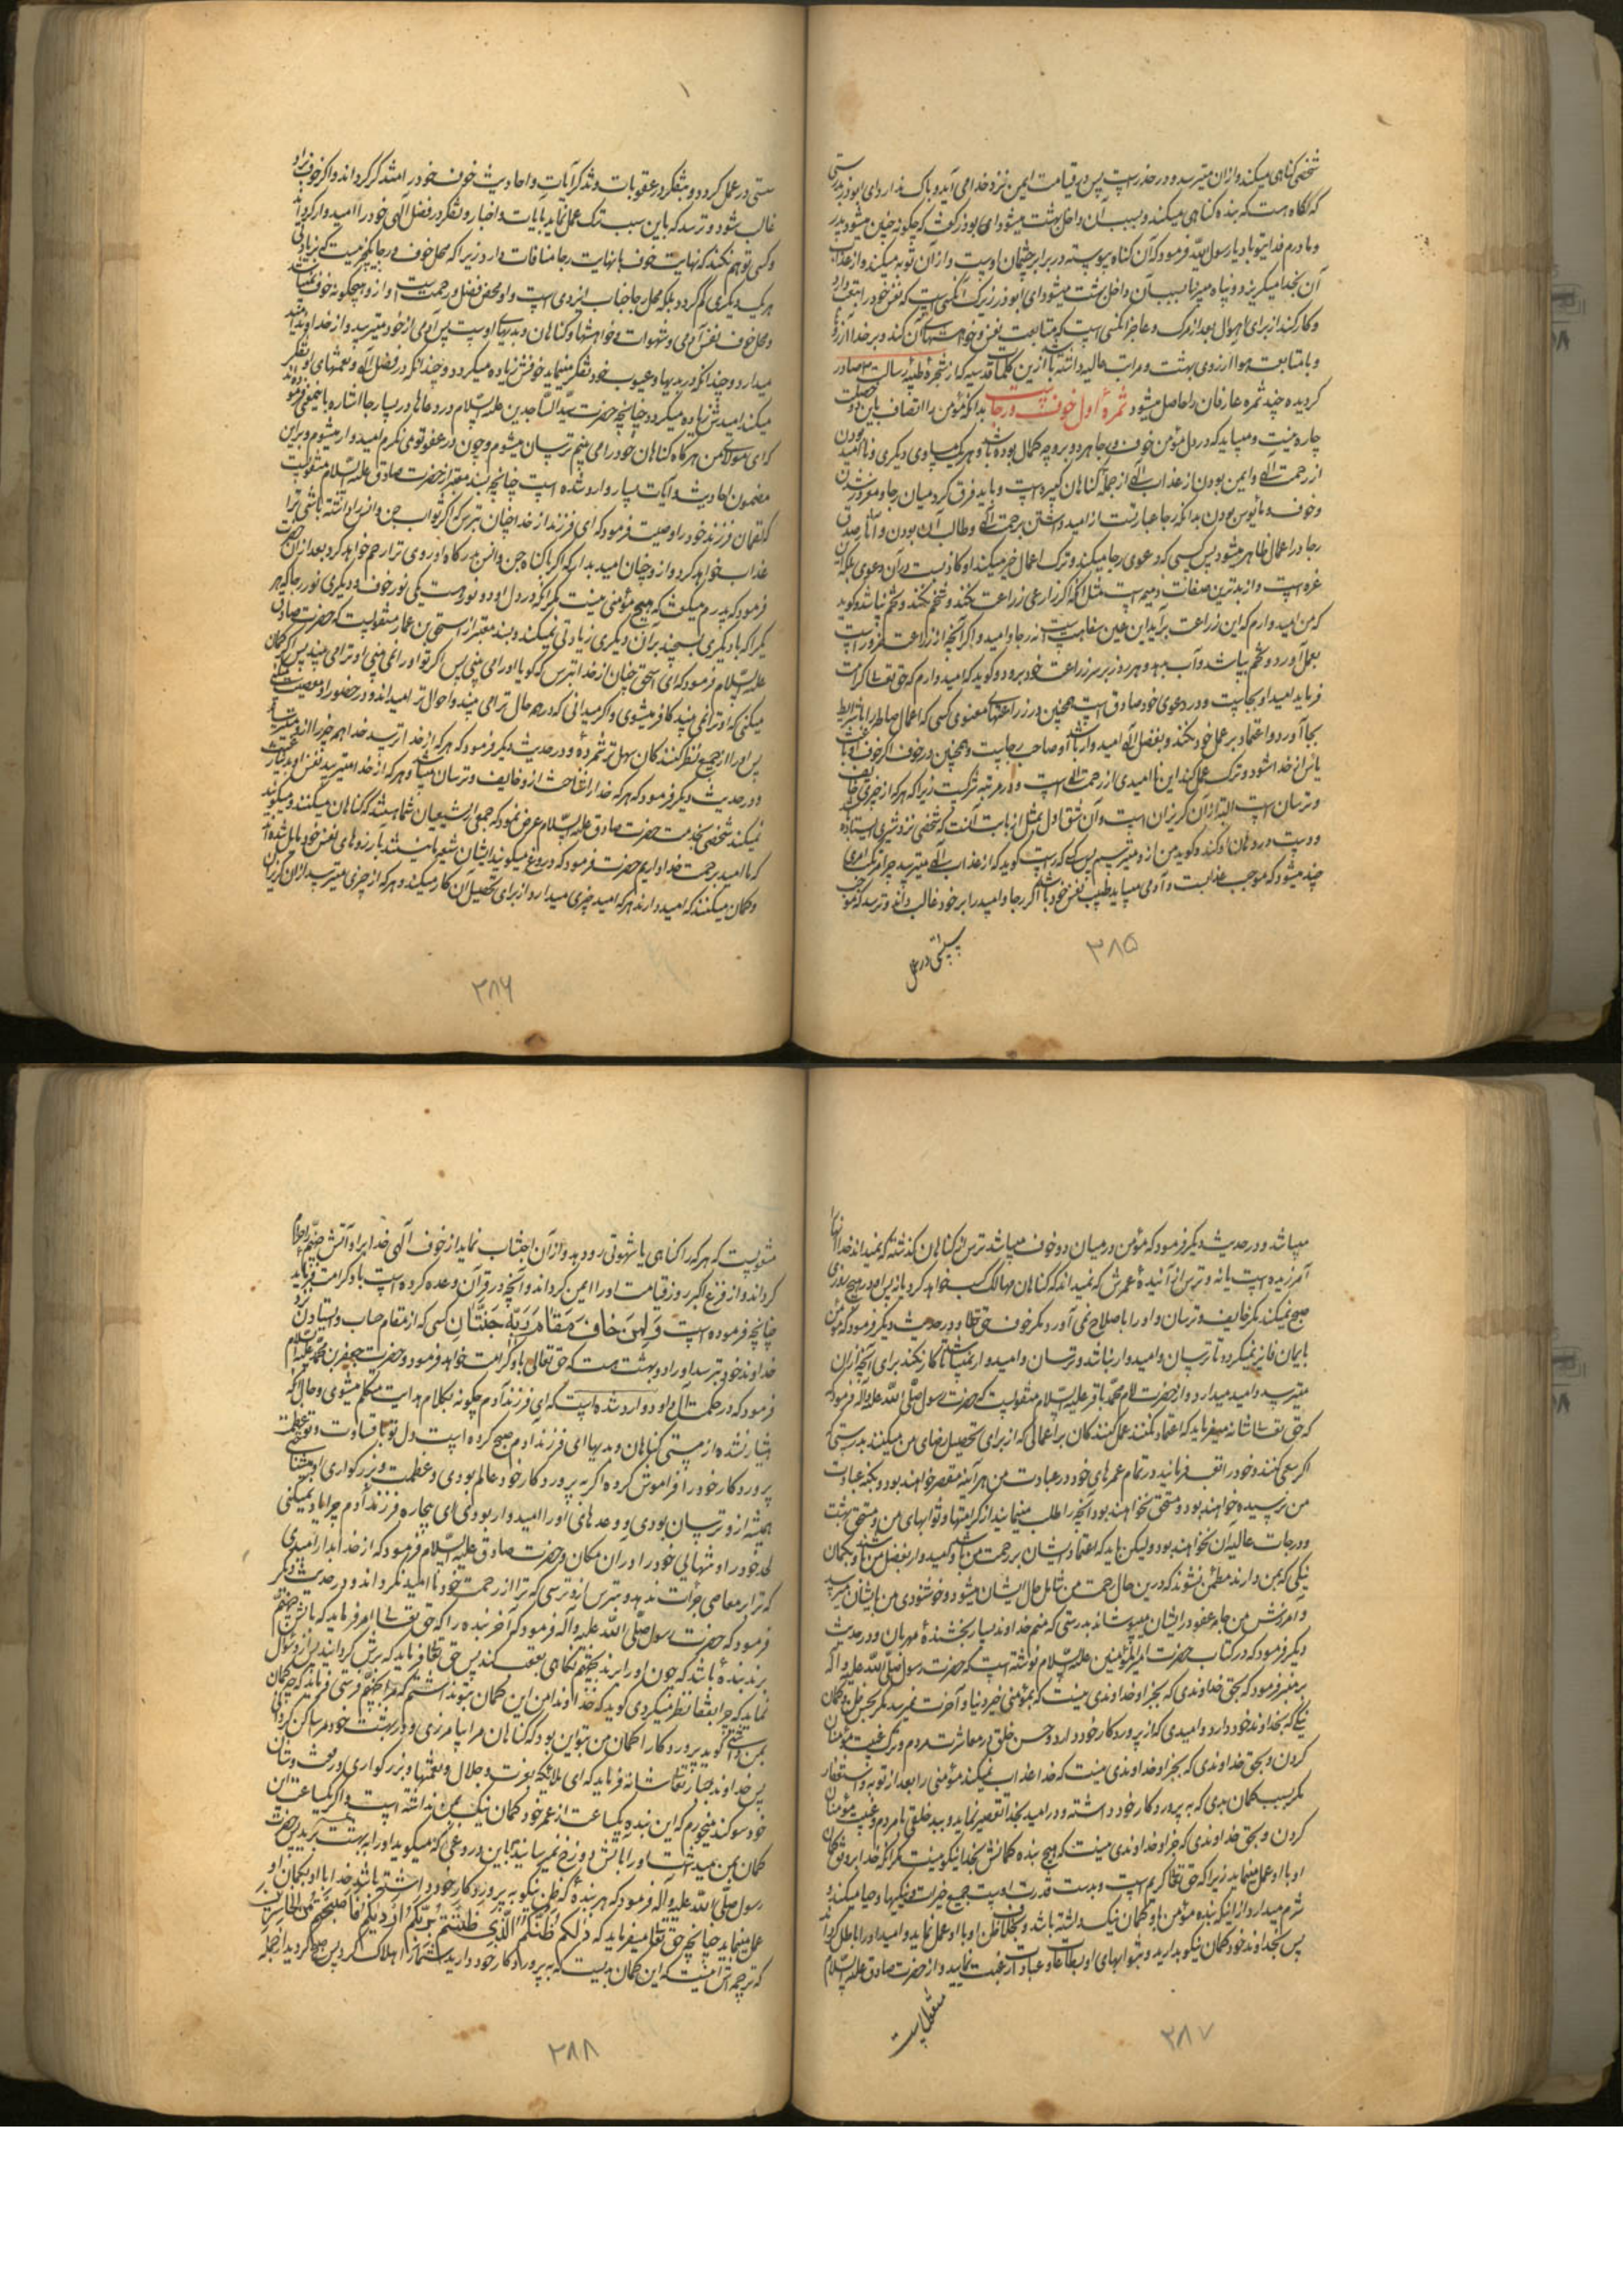 شخصی کناهی میکند و ازان میترسد و در حذرست پس در قیامت ایمن نزد خدا می آید و باک ندارد ای ابوذر بدرستی
که گاه هست که بنده کناهی میکند و بسبب آن داخل بهشت میشود ابوذر گفت که چگونه چنین میشود پدر
و مادرم فدای تو باد یا رسول الله فرمود که آن کناه پیوسته در برابر چشمان اوست و از آن توبه میکند و از عذاب
آن بخدا میکریزد و پناه میبرد تا بسبب آن داخل بهشت میشود ای ابوذر زیرک کسی است که نفس خود را
و کار کند از برای اهوال بعد از مرک و عاجز کسی است که متابعت نفس و خواهشهای آن کند و بر خدا آرزو
و با متابعت هوا آرزوی بهشت و مراتب عالیه داشته باشد ازین کلمات قدسیه که از شجره طیبه رسالت صادر
کردیده چند ثمره عارفان را حاصل میشود ثمرهٔ اول خوف و رجاست بدانکه مؤمن را اتصاف باین دو خصلت
چاره نیست و میباید که در دل مؤمن خوف و رجا هر دو بر وجه کمال بوده باشد و هر یک مساوی دیکری و ناامید بودن
از رحمت الهی و ایمن بودن از عذاب الهی از جمله کناهان کبیره است و باید فرق کرد میان رجا و مغرور شدن
و خوف و مأیوس بودن بدانکه رجا عبارتست از امید داشتن برحمت الهی و طالب آن بودن و آثار صدق
رجا در اعمال ظاهر میشود پس کسی که دعوی رجا میکند و ترک اعمال خیر میکند او کاذبست در آن دعوی بلکه
غره است و از بدترین صفات ذمیمه است مثل آنکه اکر زارعی زراعت نکند و شخم نکند و تخم نپاشد و کوید
که من امیدوارم که این زراعت برآید این عین سفاهت است نه رجا و امید و اکر آنچه از زراعت ضرور است
بعمل آورد و تخم بپاشد و آب بدهد و هر روز بر سر زراعت خود برود و کوید که امیدوارم که حق تعالی کرامت
فرماید امید او بجاست و در دعوی خود صادق است همچنین در زراعتهای معنوی کسی که اعمال صالحه را با شرایط
بجا آورد و اعتماد بر عمل خود نکند و بفضل الهی امیدوار باشد او صاحب رجاست و همچنین در خوف اکر خوف او باعث
یأس از خدا شود و ترک عمل کند این ناامیدی از رحمت الهی است و در مرتبه شرکست زیرا که هر که از چیزی خایف
و ترسان است البته از آن کریزان است و آن شق اول مثل از بابت آنست که شخصی نزد شیری ایستاده
و دست در دهان او کند و کوید من از و میترسم پس کسی که راست کوید که از عذاب الهی میترسد چرا مرتکب امری
چند میشود که موجب عذابست و آدمی میباید طبیب نفس خود باشد اکر رجا و امید را بر خود غالب داند و ترسد که موجب
سستی در عمل
۳۸۵
سستی در عمل کردد و بتفکر در عقوبات و تذکر آیات و احادیث خوف خود را متذکر کرداند و اکر خوف براو
غالب شود و ترسد که باین سبب ترک عمل نماید بآیات و اخبار و تفکر در فضل الهی خود را امیدوار کرداند
و کسی توهم نکند که نهایت خوف با نهایت رجا منافات دارد زیرا که محل خوف و رجا یک چیز نیست که بزیادتی
هر یک دیکری کم کردد بلکه محل رجا جناب ایزدی است و او محض فضل و رحمت است و از و هیچکونه خوف نمیباشد
و محل خوف نفس آدمی و شهوات و خواهشها و کناهان و بدیهای اوست پس آدمی از خود میترسد و از خداوند امید
میدارد و چندانکه در بدیها و عیوب خود تفکر مینماید خوفش زیاده میکردد و چندانکه در فضل الهی و نعمتهای او تفکر
میکند امیدش زیاده میکردد چنانچه حضرت سید الساجدین علیه السلام در دعاها در بسیار جا اشاره باین معنی فرموده
که ای مولای من هرکاه کناهان خود را می بینم ترسان میشوم و چون در عفو تو می نکرم امیدوار میشوم و براین
مضمون احادیث و آیات بسیار وارد شده است چنانچه بسند معتبر از حضرت صادق علیه السلام منقولست
که لقمان فرزند خود را وصیت فرمود که ای فرزند از خدا چنان بترس که اکر ثواب جن و انس را داشته باشی ترا
عذاب خواهد کرد و از و چنان امید بدار که اکر با کناه جن و انس بدرکاه او روی ترا رحم خواهد کرد بعد از آن حضرت
فرمود که پدرم میکفت که هیچ مؤمنی نیست مکر آنکه در دل او دو نور هست یکی نور خوف و دیکری نور رجا که هر
یک را که با دیکری بسنجند بر آن دیکری زیادتی نمیکند و بسند معتبر از اسحق بن عمار منقولست که حضرت صادق
علیه السلام فرمود که ای اسحق چنان از خدا بترس که کویا او را می بینی پس اکر تو او را نمی بینی او ترا می بیند پس اکر کمان
میکنی که او ترا نمی بیند کافر میشوی و اکر میدانی که در همه حال ترا می بیند و احوال ترا میداند و در حضور او معصیت میکنی
پس او را از جمیع نظر کنندکان سهل تر شمردهٔ و در حدیث دیکر فرمود که هر که از خدا ترسید خدا همه چیز را از و میترساند
و در حدیث دیکر فرمود که هر که خدا را شناخت از و خایف و ترسان میباشد و هر که از خدا میترسد نفس او بدنیا رغبت
نمیکند شخصی بخدمت حضرت صادق علیه السلام عرض نمود که جمعی از شیعیان شما هستند که کناهان میکنند و میکویند
که ما امید برحمت خدا داریم حضرت فرمود که دروغ میکویند ایشان شیعه ما نیستند بآرزوهای نفس خود مایل شده اند
و کمان میکنند که امید دارند هر که امید چیزی میدارد از برای تحصیل آن کار میکند و هر که از چیزی میترسد از آن کریزان
۳۸۶
میباشد و در حدیث دیکر فرمود که مؤمن در میان دو خوف میباشد ترس از کناهان کذشته که نمیداند خدا آنها
آمرزیده است یا نه و ترس از آینده عمرش که نمیداند که کناهان مهالک کسب خواهد کرد یا نه پس او در هیچ روزی
صبح نمیکند مکر خایف و ترسان و او را باصلاح نمی آورد مکر خوف حق تعالی و در حدیث دیکر فرمود که مؤمن
بایمان فایز نمیکردد تا ترسان و امیدوار نباشد و ترسان و امیدوار نمیباشد تا کار نکند برای آنچه از آن
میترسد و امید میدارد و از حضرت امام محمد باقر علیه السلام منقولست که حضرت رسول صلی الله علیه و آله فرمود که
که حق تعالی شانه میفرماید که اعتماد نکنند عمل کنندکان بر اعمالی که از برای تحصیل رضای من میکنند بدرستی که
اکر سعی کنند و خود را تعب فرمایند در تمام عمرهای خود در عبادت من هر آینه مقصر خواهند بود و بکنه عبادت
من نرسیده خواهند بود و مستحق نخواهند بود آنچه را طلب مینمایند از کرامتها و ثوابهای من و مستحق بهشت
و درجات عالیه آن نخواهند بود ولیکن باید که اعتماد ایشان بر رحمت من باشد و امیدوار بفضل من باشند و بکمان
نیکی که بمن دارند مطمئن بشوند که درین حال رحمت من شامل حال ایشان میشود و خوشنودی من بایشان میرسد
و آمرزش من جامه عفو در ایشان میپوشاند بدرستی که منم خداوند بسیار بخشندهٔ مهربان و در حدیث
دیکر فرمود که در کتاب حضرت امیر المؤمنین علیه السلام نوشته است که حضرت رسول صلی الله علیه و آله
بر منبر فرمود که بحق خداوندی که بجز او خداوندی نیست که بمؤمنی خیر دنیا و آخرت نمیرسد مکر بحسن ظن و کمان
نیکی که بخداوند خود دارد و امیدی که از پروردکار خود دارد و حسن خلق و معاشرت مردم و ترک غیبت مؤمنان
کردن و بحق خداوندی که بجز او خداوندی نیست که خدا عذاب نمیکند مؤمنی را بعد از توبه و استغفار
مکر بسبب کمان بدی که به پروردکار خود داشته و در امید بخدا تقصیر نماید و ببد خلقی با مردم و غیبت مؤمنان
کردن و بحق خداوندی که جز او خداوندی نیست که هیچ بنده کمانش بخدا نیکو نیست مکر آنکه خدا بروفق کمان
او با او عمل مینماید زیرا که حق تعالی کریم است و بدست قدرت اوست جمیع خیرات و نیکیها و حیا میکند و
شرم میدارد از اینکه بنده مؤمن باو کمان نیک داشته باشد و بخلاف ظن او با او عمل نماید و امید او را باطل کرداند
پس بخداوند خود کمان نیکو بدارید و بثوابهای او بطاعات و عبادات رغبت نمایید و از حضرت صادق علیه السلام
منقول است
۳۸۷
منقولست که هر که را کناهی یا شهوتی رو دهد و از آن اجتناب نماید از خوف الهی خدا بر او آتش جهنم را حرام
کرداند و از فزع اکبر روز قیامت او را ایمن کرداند و آنچه در قرآن وعده کرده است باو کرامت فرماید
چنانچه فرموده است وَلِمَنْ خَافَ مَقَامَ رَبِّهِ جَنَّتَانِ کسی که از مقام حساب و ایستادن نزد
خداوند خود بترسد او را دو بهشت هست که حق تعالی باو کرامت خواهد فرمود و حضرت جعفر بن محمد علیه السلام
فرمود که در حکمت آل داود وارد شده است که ای فرزند آدم چکونه بکلام هدایت متکلم میشوی و حال آنکه
هشیار نشده از مستی کناهان و بدیها ای فرزند آدم صبح کرده است دل تو با قساوت و تو عظمت
پروردکار خود را فراموش کرده اکر به پروردکار خود عالم بودی و عظمت و بزرکواری او میشناختی
همیشه از و ترسان بودی و وعدهای او را امیدوار بودی ای بیچاره فرزند آدم چرا یاد نمیکنی
لحد خود را و تنهایی خود را در آن مکان و حضرت صادق علیه السلام فرمود که از خدا بدار امیدی
که ترا بر معاصی جرأت ندهد و بترس از و ترسی که ترا از رحمت خود ناامید نکرداند و در حدیث دیکر
فرمود که حضرت رسول صلی الله علیه و آله فرمود که آخر بنده را که حق تعالی امر فرماید که بآتش جهنم
برند بنده باشد که چون او را برند بجهنم نکاهی بعقب کند پس حق تعالی فرماید که برش کردانید پس از و سؤال
نماید که چرا بعقب نظر میکردی کوید که خداوندا من این کمان بتو نداشتم که مرا بجهنم فرستی فرماید که چه کمان
بمن داشتی کوید پروردکارا کمان من بتو این بود که کناهان مرا بیامرزی و در بهشت خود مرا ساکن کردانی
پس خداوند جبار تعالی شانه فرماید که ای ملائکه بعزت و جلال و نعمتها و بزرکواری و رفعت و شان
خود سوکند میخورم که این بنده یکساعت از عمر خود کمان نیک بمن نداشته است و اکر یکساعت این
کمان بمن میداشت او را بآتش دوزخ نمیرسانیدم باین دروغی که میکوید او را به بهشت برید پس حضرت
رسول صلی الله علیه و آله فرمود که هر بندهٔ که ظن نیکو به پروردکار خود داشته باشد خدا با او بکمان او
عمل مینماید چنانچه حق تعالی میفرماید که ذَلِكُمْ ظَنُّكُمُ الَّذِي ظَنَنْتُمْ بِرَبِّكُمْ أَرْدَاكُمْ فَأَصْبَحْتُمْ مِنَ الْخَاسِرِينَ
که ترجمه اش اینست که این کمان بدیست که به پروردکار خود دارید شما را هلاک کرد پس صباح کردید از جمله
۳۸۸